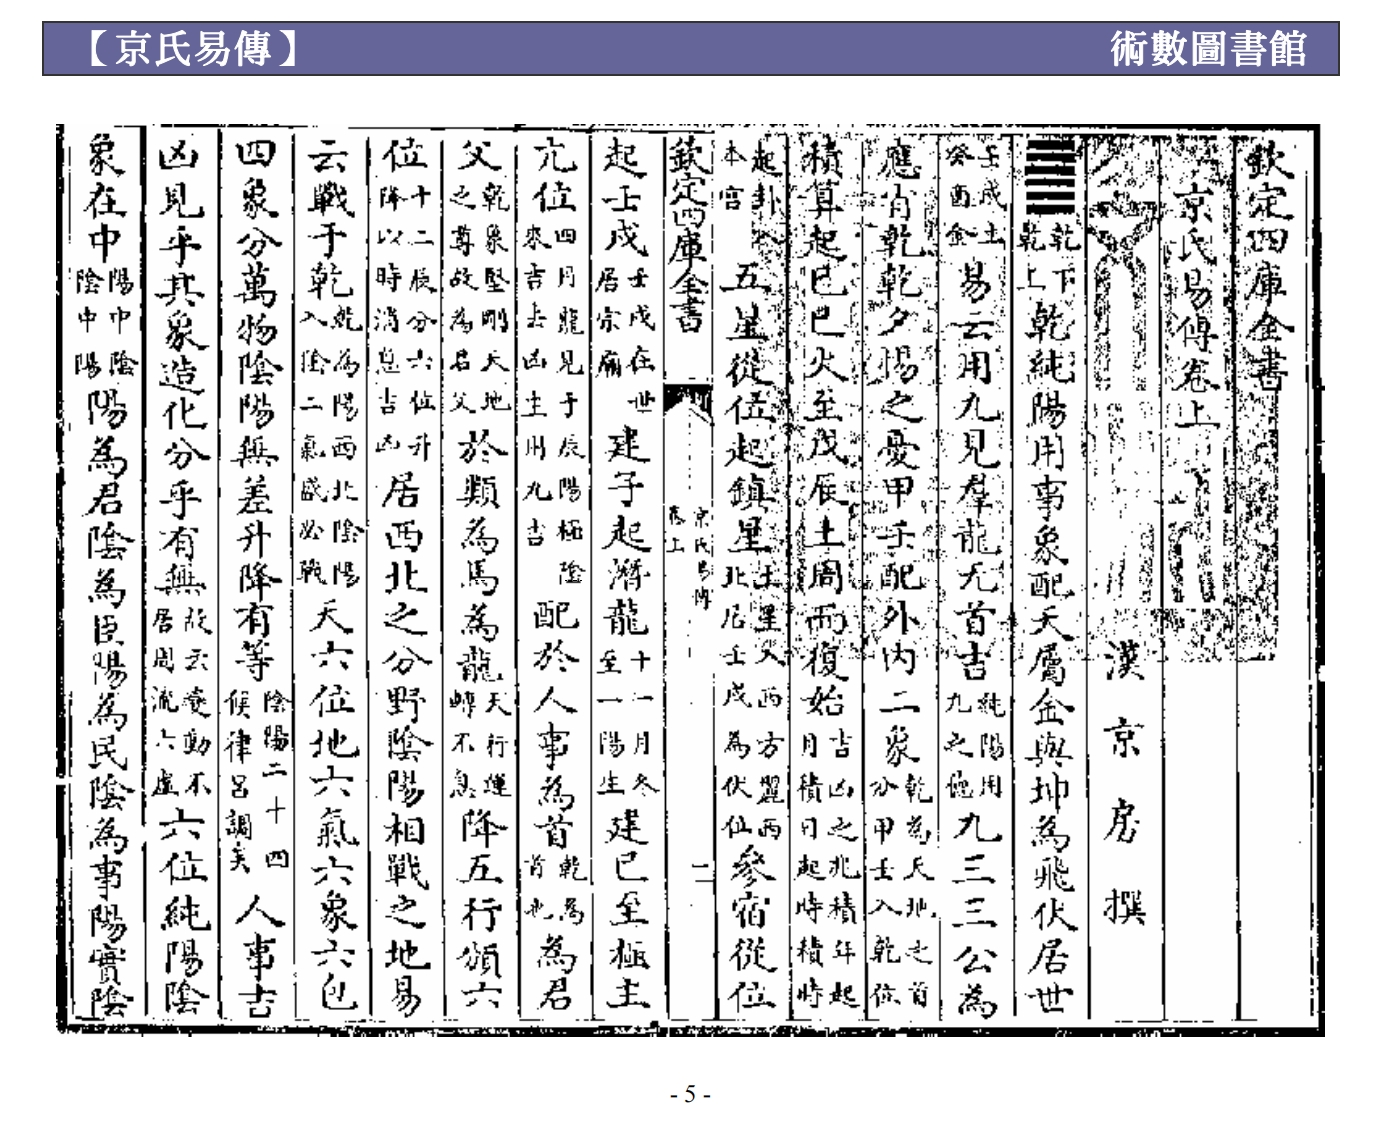 【京氏易傳】 術數圖書館
欽定四庫全書
京氏易傳卷上
漢 京房 撰
乾下乾上乾純陽用事象配天屬金與坤為飛伏居世
壬戌土癸酉金易云用九見羣龍无首吉純陽用九之德九三三公為
應肖乾乾夕惕之憂甲壬配外內二象乾為天地之首分甲壬入乾位
積算起巳巳火至戊辰土周而復始吉凶之兆積年起月積日起時積時
起卦入本宮五星從位起鎮星土星入西方麗西北居壬戌為伏位參宿從位
欽定四庫全書 京氏易傳卷上 二
起壬戌壬戌在世居宗廟建子起潛龍十一月冬至一陽生建巳至極主
亢位四月龍見于辰陽極陰來吉去凶生用九吉配於人事為首乾為首也為君
父乾象堅剛天地之尊故為君父於類為馬為龍天行運轉不息降五行頒六
位十二辰分六位升降以時消息吉凶居西北之分野陰陽相戰之地易
云戰于乾乾為陽西北陰陽入陰二氣盛必戰天六位地六氣六象六包
四象分萬物陰陽無差升降有等陰陽二十四候律呂調矣人事吉
凶見乎其象造化分乎有無故云變動不居周流六虛六位純陽陰
象在中陽中陰陰中陽陽為君陰為臣陽為民陰為事陽實陰
- 5 -